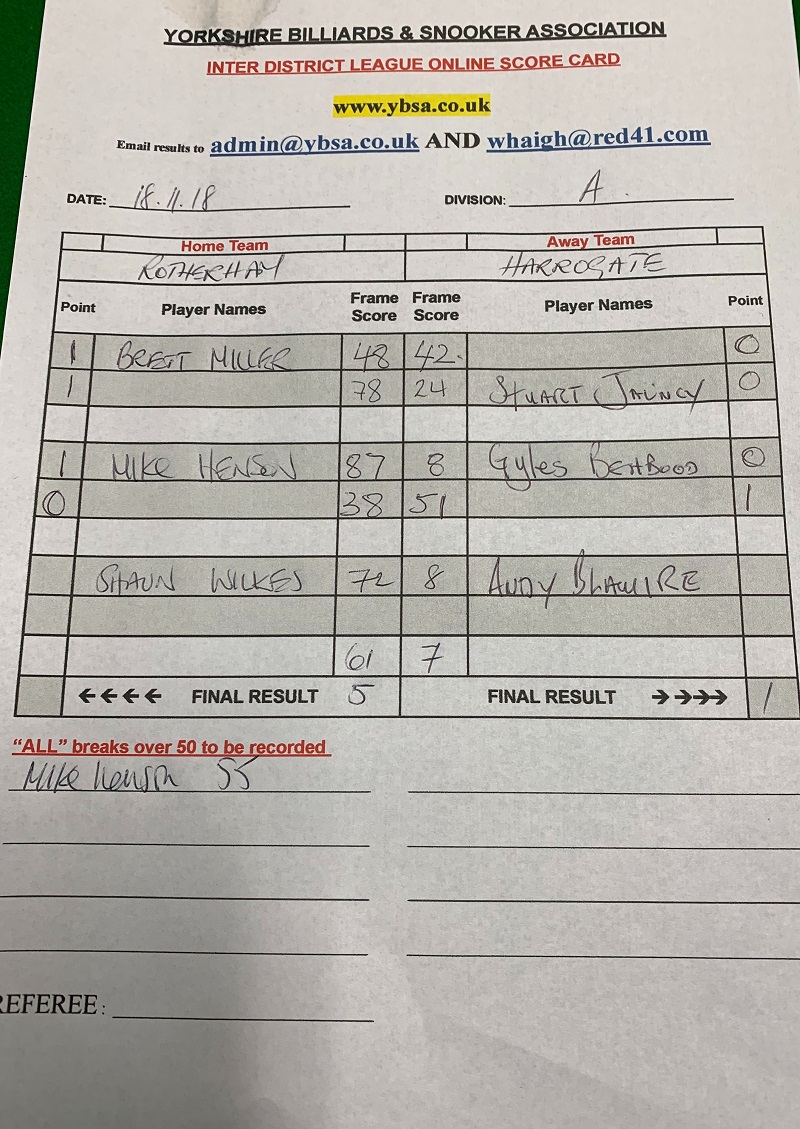 YORKSHIRE BILLIARDS & SNOOKER ASSOCIATION
INTER DISTRICT LEAGUE ONLINE SCORE CARD
www.ybsa.co.uk
Email results to admin@ybsa.co.uk AND whaigh@red41.com
DATE: 18.11.18 DIVISION: A.
Home Team Away Team
ROTHERHAM HARROGATE
Point Player Names Frame Score Frame Score Player Names Point
1 BRETT MILLER 48 42. 0
1 78 24 STUART 0
1 MIKE HENSON 87 8 Gyles 0
0 38 51 1
SHAUN WILKES 72 8 ANDY
61 7
←←←← FINAL RESULT 5 FINAL RESULT →→→→ 1
"ALL" breaks over 50 to be recorded
Mike henson 55
REFEREE: